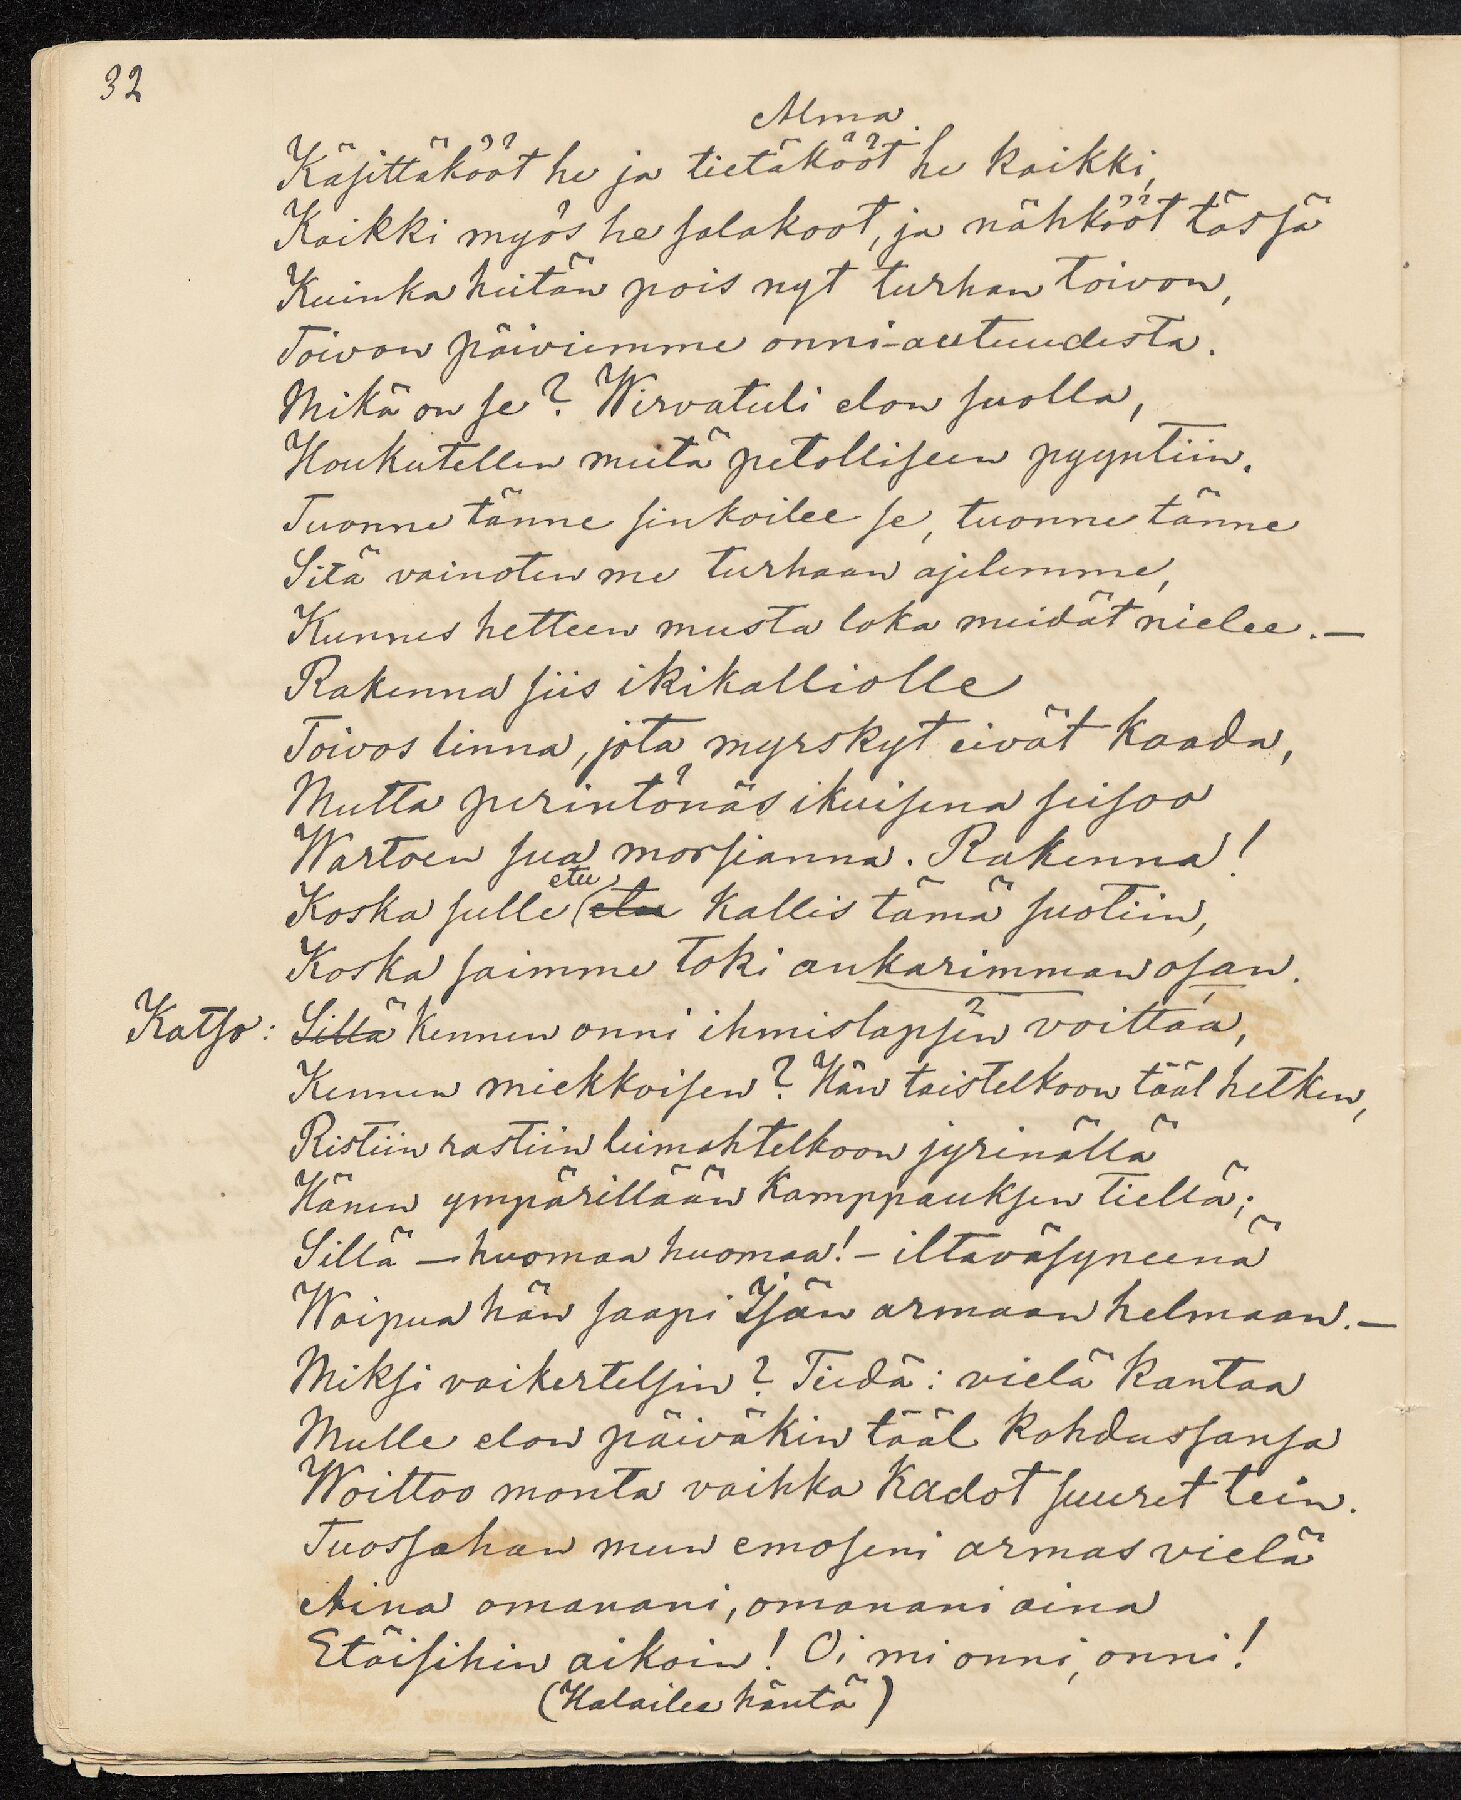 32
Alma.
Käsittäkööt he ja tietäkööt he kaikki,
Kaikki myös he salakoot, ja nähkööt tässä
Kuinka hiitän pois nyt turhan toivon,
Toivon päiviemme onni-autuudesta.
Mikä on se? Wirvatuli elon suolla,
Houkutellen meitä petolliseen pyyntiin.
Tuonne tänne sinkoilee se, tuonne tänne
Sitä vainoten me turhaan ajelemme,
Kunnes hetteen musta loka meidät nielee.—
Rakenna siis ikikalliolle
Toivos linna, jota myrskyt eivät kaada,
Mutta perintönäs ikuisena seisoo
Wartoen sua morsianna. Rakenna!
etu
Koska sulle (etu kallis tämä suotiin,
Koska saimme toki ankarimman osan.
Katso: Sillä kennen onni ihmislapsen voittaa,
Kennen miekkoisen? Hän taistelkoon tääl hetken,
Ristiin rastiin leimahtelkoon jyrinällä
Hänen ympärillään kamppauksen tiellä;
Sillä — huomaa huomaa! — iltaväsyneenä
Waipua hän saapi Isän armaan helmaan.—
Miksi vaikertelsin? Tiedä: vielä kantaa
Mulle elon päiväkin tääl kohdussansa
Woittoo monta vaikka kadot suuret tein.
Tuossahan mun emoseni armas vielä
Aina omanani, omanani aina
Etäisihin aikoin! Oi mi onni, onni!
(Halailee häntä)